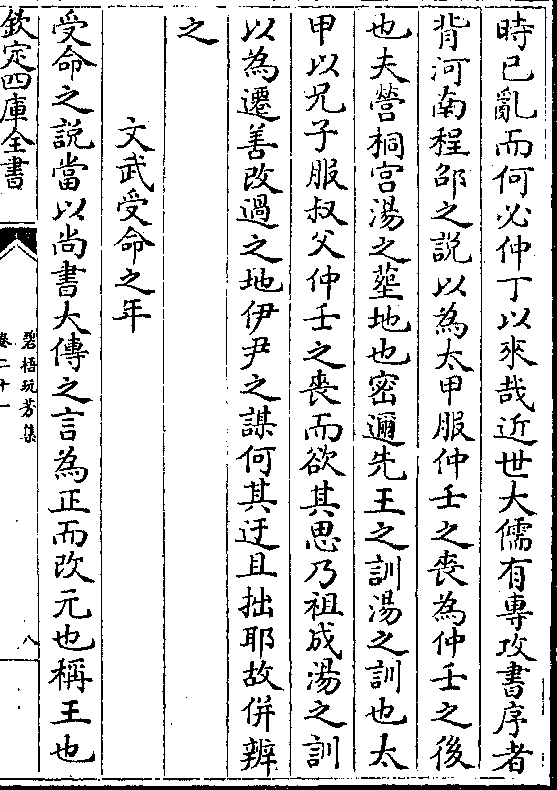 時已亂而何必仲丁以來哉近世大儒有專攻書序者
背河南程邵之説以為太甲服仲壬之喪為仲壬之後
也夫營桐宫湯之塟地也密邇先王之訓湯之訓也太
甲以兄子服叔父仲壬之喪而欲其思乃祖成湯之訓
以為遷善改過之地伊尹之謀何其迂且拙耶故併辨
之
文武受命之年
受命之説當以尚書大傳之言為正而改元也稱王也
欽定四庫全書
碧梧玩芳集
卷二十一
八